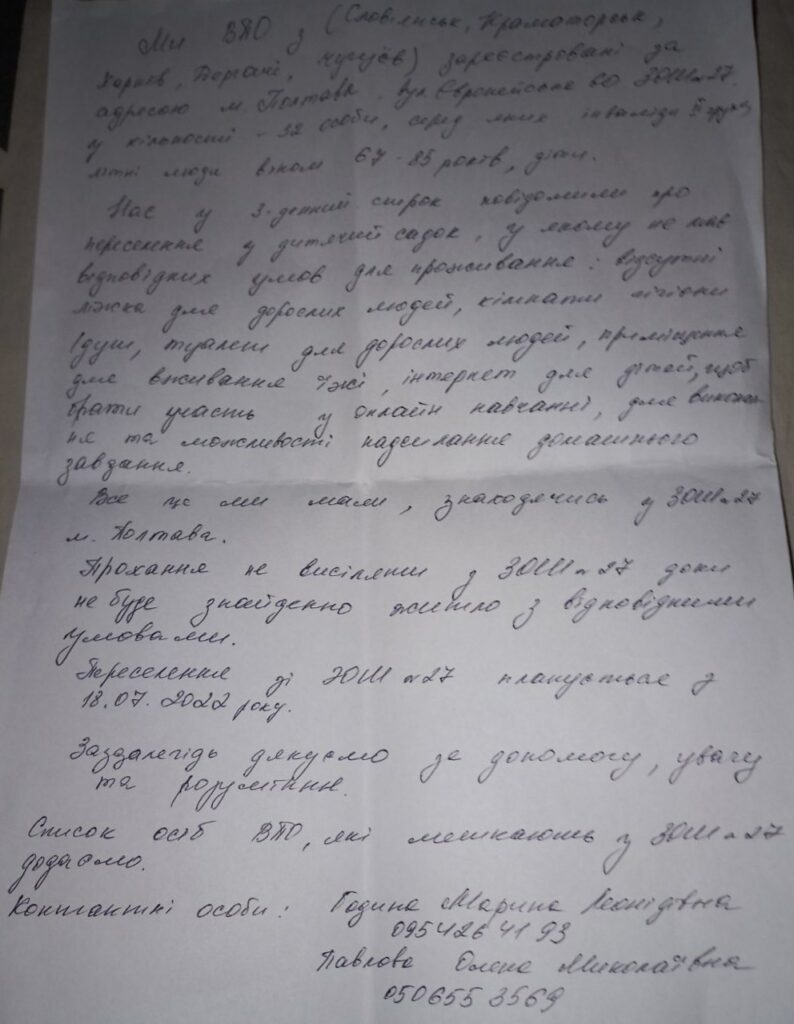 Ми ВПО з (Словянськ, Краматорськ,
Харків, Борзні, Чугуїв) зареєстровані за
адресою м. Полтава, вул Європейська 80 ЗОШ №27
у кількості - 32 особи, серед яких інваліди ІІ групи,
літні люди віком 67-85 років, діти.
Нас у 3-денний строк повідомили про
переселення у дитячий садок, у якому не має
відповідних умов для проживання: відсутні
ліжка для дорослих людей, кімнати гігієни
(душ, туалет для дорослих людей, приміщення
для вживання їжі, інтернет для дітей, щоб
брати участь у онлайн навчанні, для виконан-
ня та можливості надсилання домашнього
завдання.
Все це ми мали, знаходячись у ЗОШ №27
м. Полтава.
Прохання не висіляти з ЗОШ №27 доки
не буде знайденно житло з відповідними
умовами.
Переселення зі ЗОШ №27 планується з
18.07.2022 року.
Заздалегідь дякуємо за допомогу, увагу
та розуміння.
Список осіб ВПО, які мешкають у ЗОШ №27
додаємо.
Контактні особи: Година Марина Леонідівна
095 426 41 93
Павлова Олена Миколаївна
050 655 3569